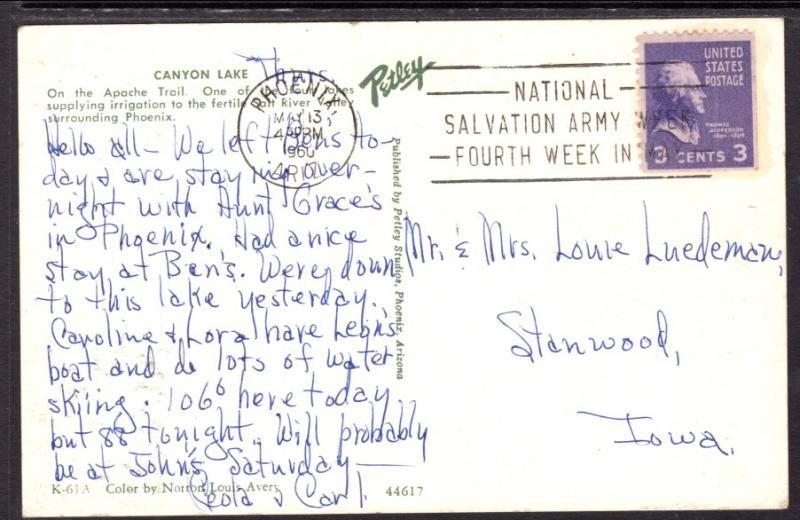 CANYON LAKE
On the Apache Trail. One of the four lakes
supplying irrigation to the fertile Salt River Valley
surrounding Phoenix.
Thurs.
Hello All - We left Bens to-
day & are staying over-
night with Aunt Grace's
in Phoenix. Had a nice
stay at Ben's. Were down
to this lake yesterday.
Caroline & Lora have Leon's
boat and do lots of water
skiing. 106° here today
but 88 tonight. Will probably
be at John's Saturday —
Leola & Carl
K-61A Color by Norton Louis Avery
44617
Published by Petley Studios, Phoenix, Arizona
Petley
PHOENIX
MAY 13
PM
1960
ARIZ.
NATIONAL
SALVATION ARMY WEEK
FOURTH WEEK IN MAY
UNITED
STATES
POSTAGE
THOMAS
JEFFERSON
3 CENTS 3
Mr. & Mrs. Louie Luedeman,
Stanwood,
Iowa.